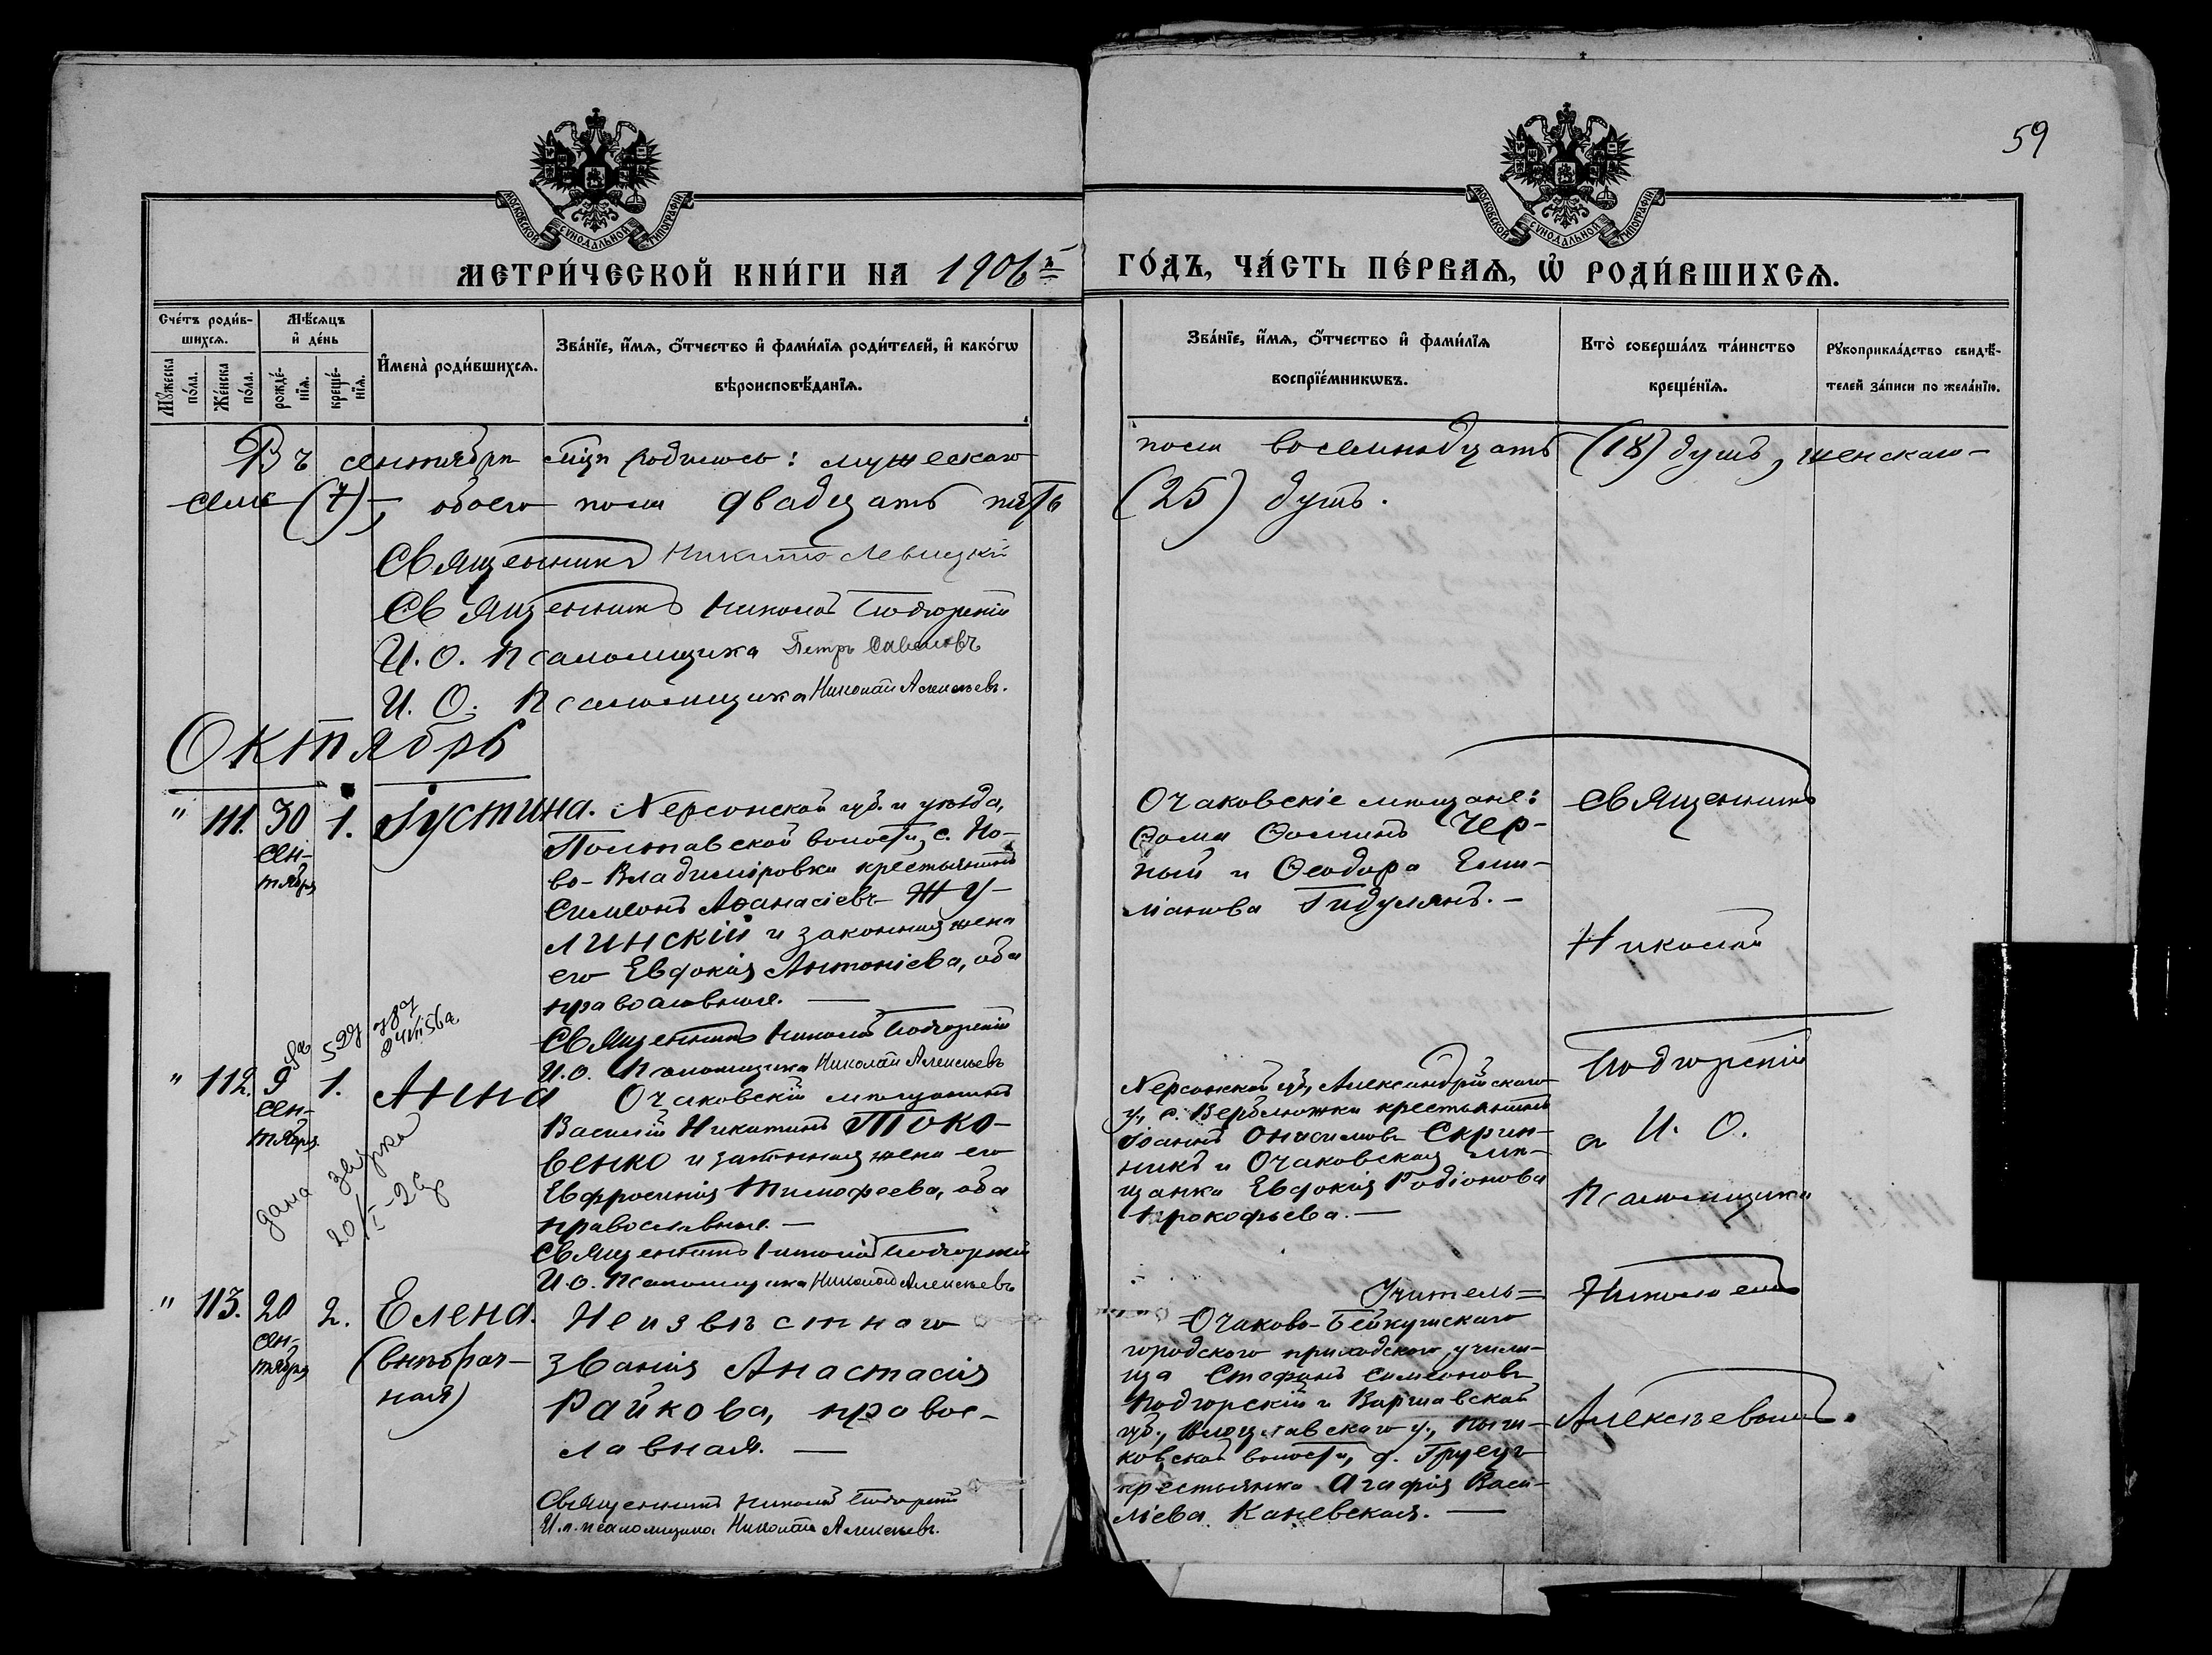 59
МОСКОВСКОЙ СѴНОДАЛЬНОЙ ТИПОГРАФІИ
МОСКОВСКОЙ СѴНОДАЛЬНОЙ ТИПОГРАФІИ
МЕТРИ́ЧЕСКОЙ КНИ́ГИ НА 1906й
ГО́ДЪ, ЧА́СТЬ ПЕ́РВАѦ, Ѡ҆ РОДИ́ВШИХСѦ.
Сче́тъ роди́в-
шихсѧ.
Мꙋ́жеска
по́ла.
Же́нска
по́ла.
Мѣ́сѧцъ
и҆ де́нь
рожде́-
нїѧ.
креще́-
нїѧ.
И҆мена̀ роди́вшихсѧ.
Зва́нїе, и҆́мѧ, ѻ҆́тчество и҆ фами́лїѧ роди́телей, и҆ како́гѡ
вѣроисповѣ́данїѧ.
Зва́нїе, и҆́мѧ, ѻ҆́тчество и҆ фами́лїѧ
воспрїе́мникѡвъ.
Кто̀ соверша́лъ та́инство
креще́нїѧ.
Рꙋкоприкла́дство свидѣ́-
телей за́писи по жела́нїю.
Въ сентябрѣ мцѣ родилось: мужескаго
пола восемнадцать (18) душъ, женскаго -
семь (7), обоего пола двадцать пять
(25) душъ.
Священникъ Никита Левицкій
Священникъ Николай Подгорскій
И. О. Псаломщика Петръ
И. О. Псаломщика Николай Алексѣевъ.
Октябрь
" 111. 30 1. Іустина.
Сен-
тября
Херсонской губ. и уѣзда,
Полтавской волости, с. Но-
во-Владиміровки крестьянинъ
Симеонъ Аѳанасіевъ Жу-
линскій и законная жена
его Евдокія Антоніева, оба
православные. —
Священникъ Николай Подгорскій
И. О. Псаломщика Николай Алексѣевъ
Очаковскіе мѣщане:
Ѳома Ѳоминъ Чер-
ный и Ѳеодора Еми-
ліанова Гидулянъ. -
Священникъ
Николай
Подгорскій
а И. О.
Псаломщика
Николаемъ
Алексѣевымъ.
" 112. 9 1. Анна
Сен-
тября
дана
20/I-
Очаковскій мѣщанинъ
Василій Никитинъ Токо-
венко и законная жена его
Евфросинія Тимофеева, оба
православные. —
Священникъ Николай Подгорскій
И. О. Псаломщика Николай Алексѣевъ
Херсонской губ., Александрійскаго
у., с. Верблюжки крестьянинъ
Іоаннъ Онисимовъ Скрин-
никъ и Очаковская мѣ-
щанка Евдокія Родіонова
Прокофьева. —
" 113. 20 2. Елена.
Сен-
тября
(внѣбрач-
ная)
Неизвѣстнаго
званія Анастасія
Райкова, правос-
лавная. —
Священникъ Николай Подгорскій
И. о. псаломщика Николай Алексѣевъ.
Учитель =
Очаково-Бейкушскаго
городского приходскаго учили-
ща Стефанъ Симеоновъ
Подгорскій и Варшавской
губ., Влоцлавскаго у.,
ковской волости, д.
крестьянка Агафія Васи-
ліева Каневская. —